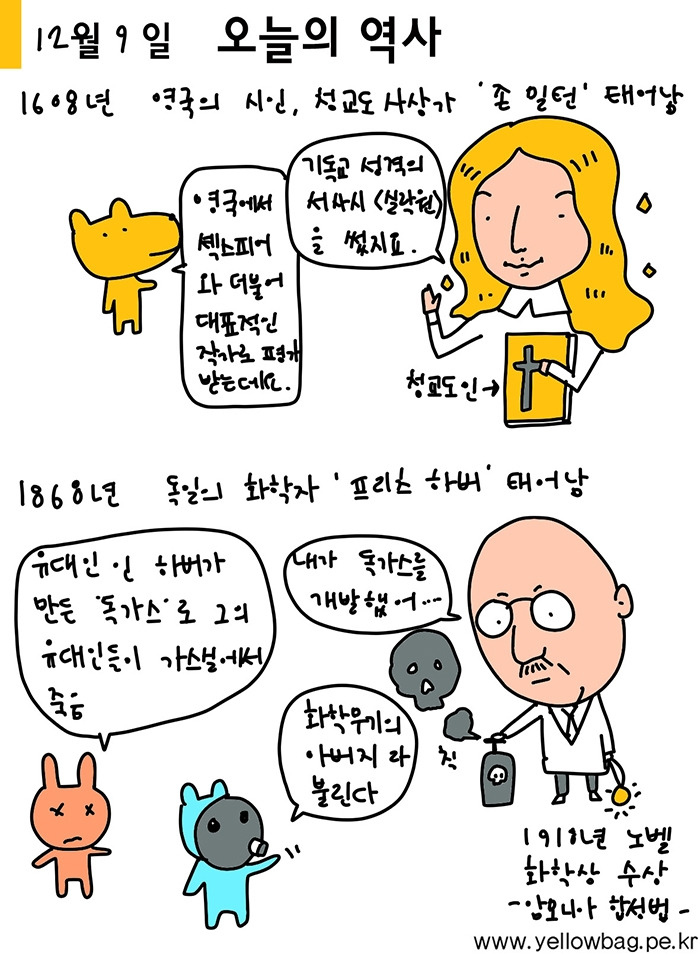 12월 9일 오늘의 역사
1608년 영국의 시인, 청교도 사상가 '존 밀턴' 태어남
영국에서
셱스피어
와 더불어
대표적인
작가로 평가
받는데요.
기독교 성격의
서사시 <실락원>
을 썼지요.
청교도인→
1868년 독일의 화학자 '프리츠 하버' 태어남
유대인 인 하버가
만든 '독가스'로 그의
유대인들이 가스실에서
죽음
내가 독가스를
개발했어...
칙
화학무기의
아버지 라
불린다
1918년 노벨
화학상 수상
-암모니아 합성법-
www.yellowbag.pe.kr